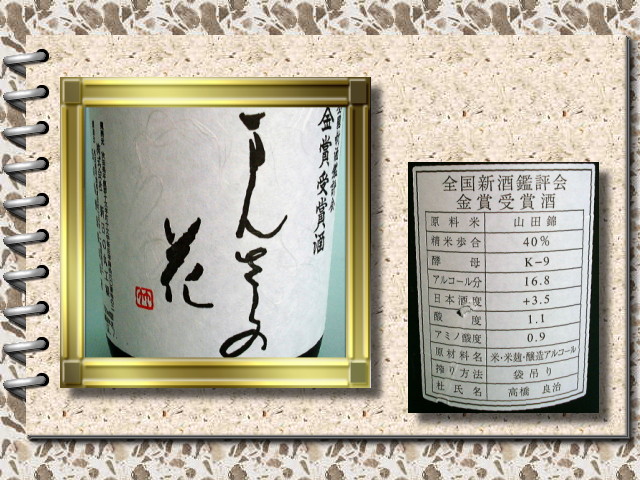 金賞受賞酒
まんさくの
花
全国新酒鑑評会
金賞受賞酒
原料米 山田錦
精米歩合 40%
酵母 K-9
アルコール分 16.8
日本酒度 +3.5
酸度 1.1
アミノ酸度 0.9
原材料名 米・米麹・醸造アルコール
搾り方法 袋吊り
杜氏名 高橋 良治